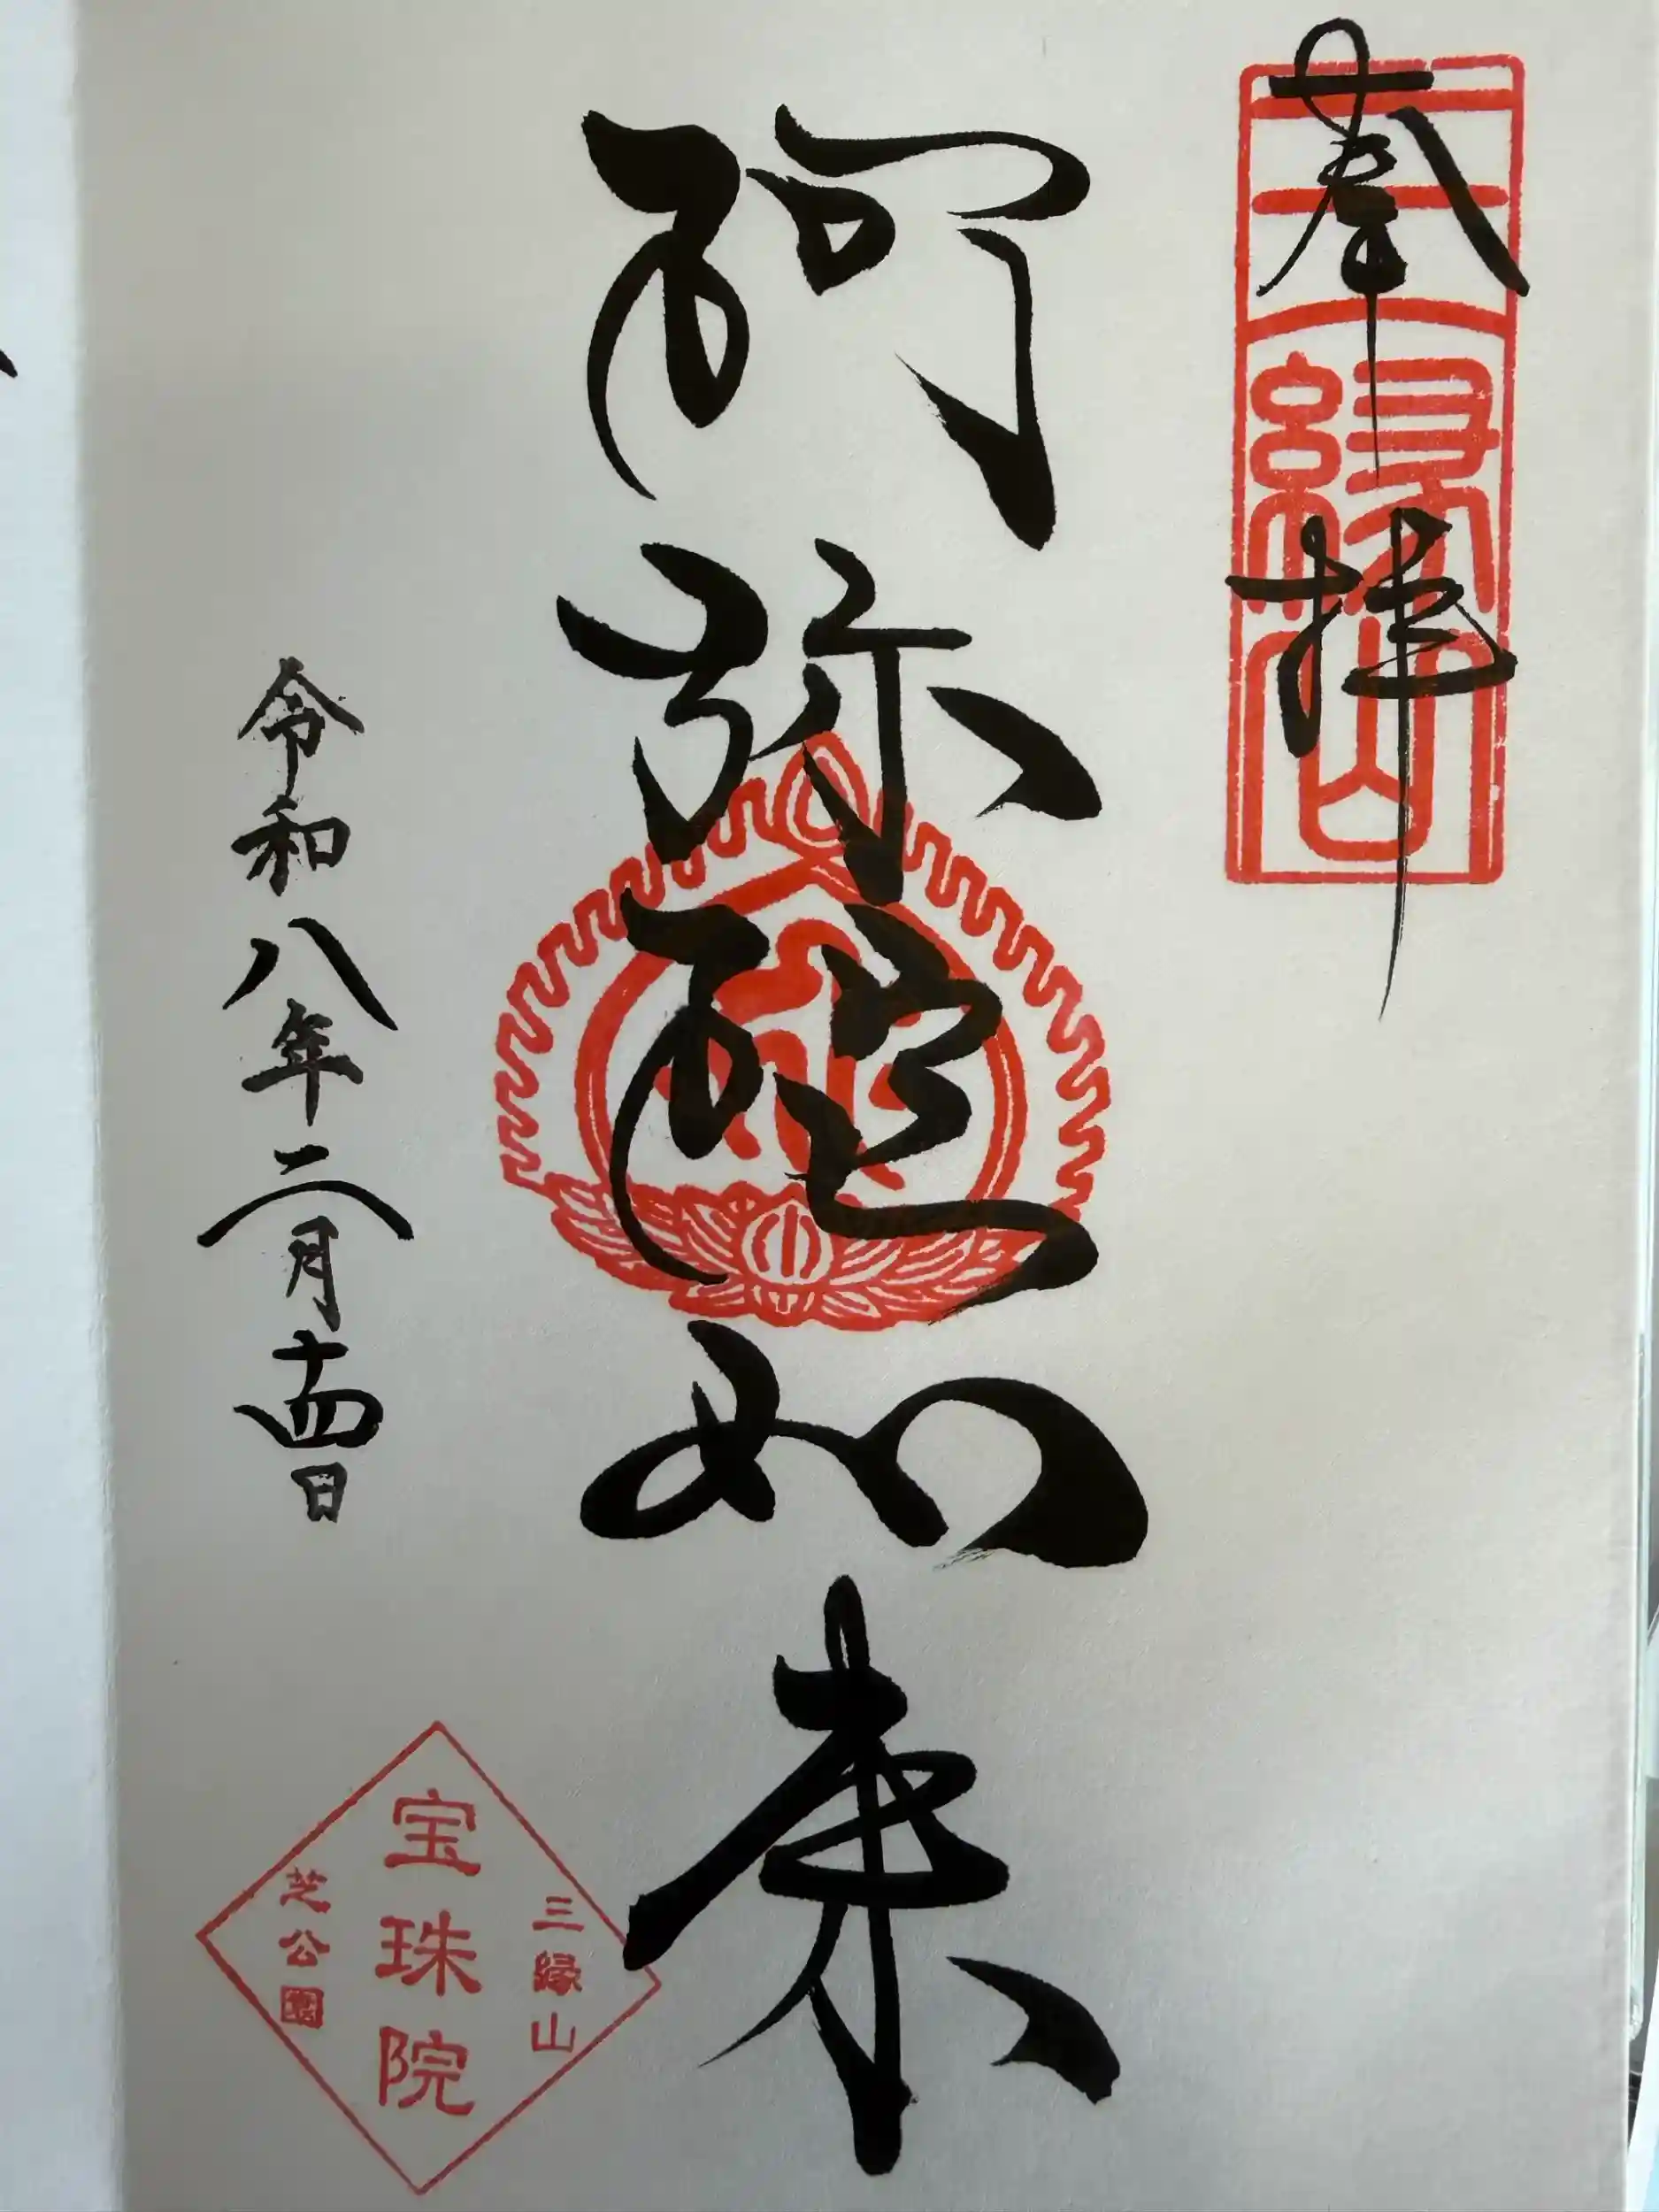 奉拝
三縁山
阿弥陀如来
令和八年二月十四日
三縁山
宝珠院
芝公園